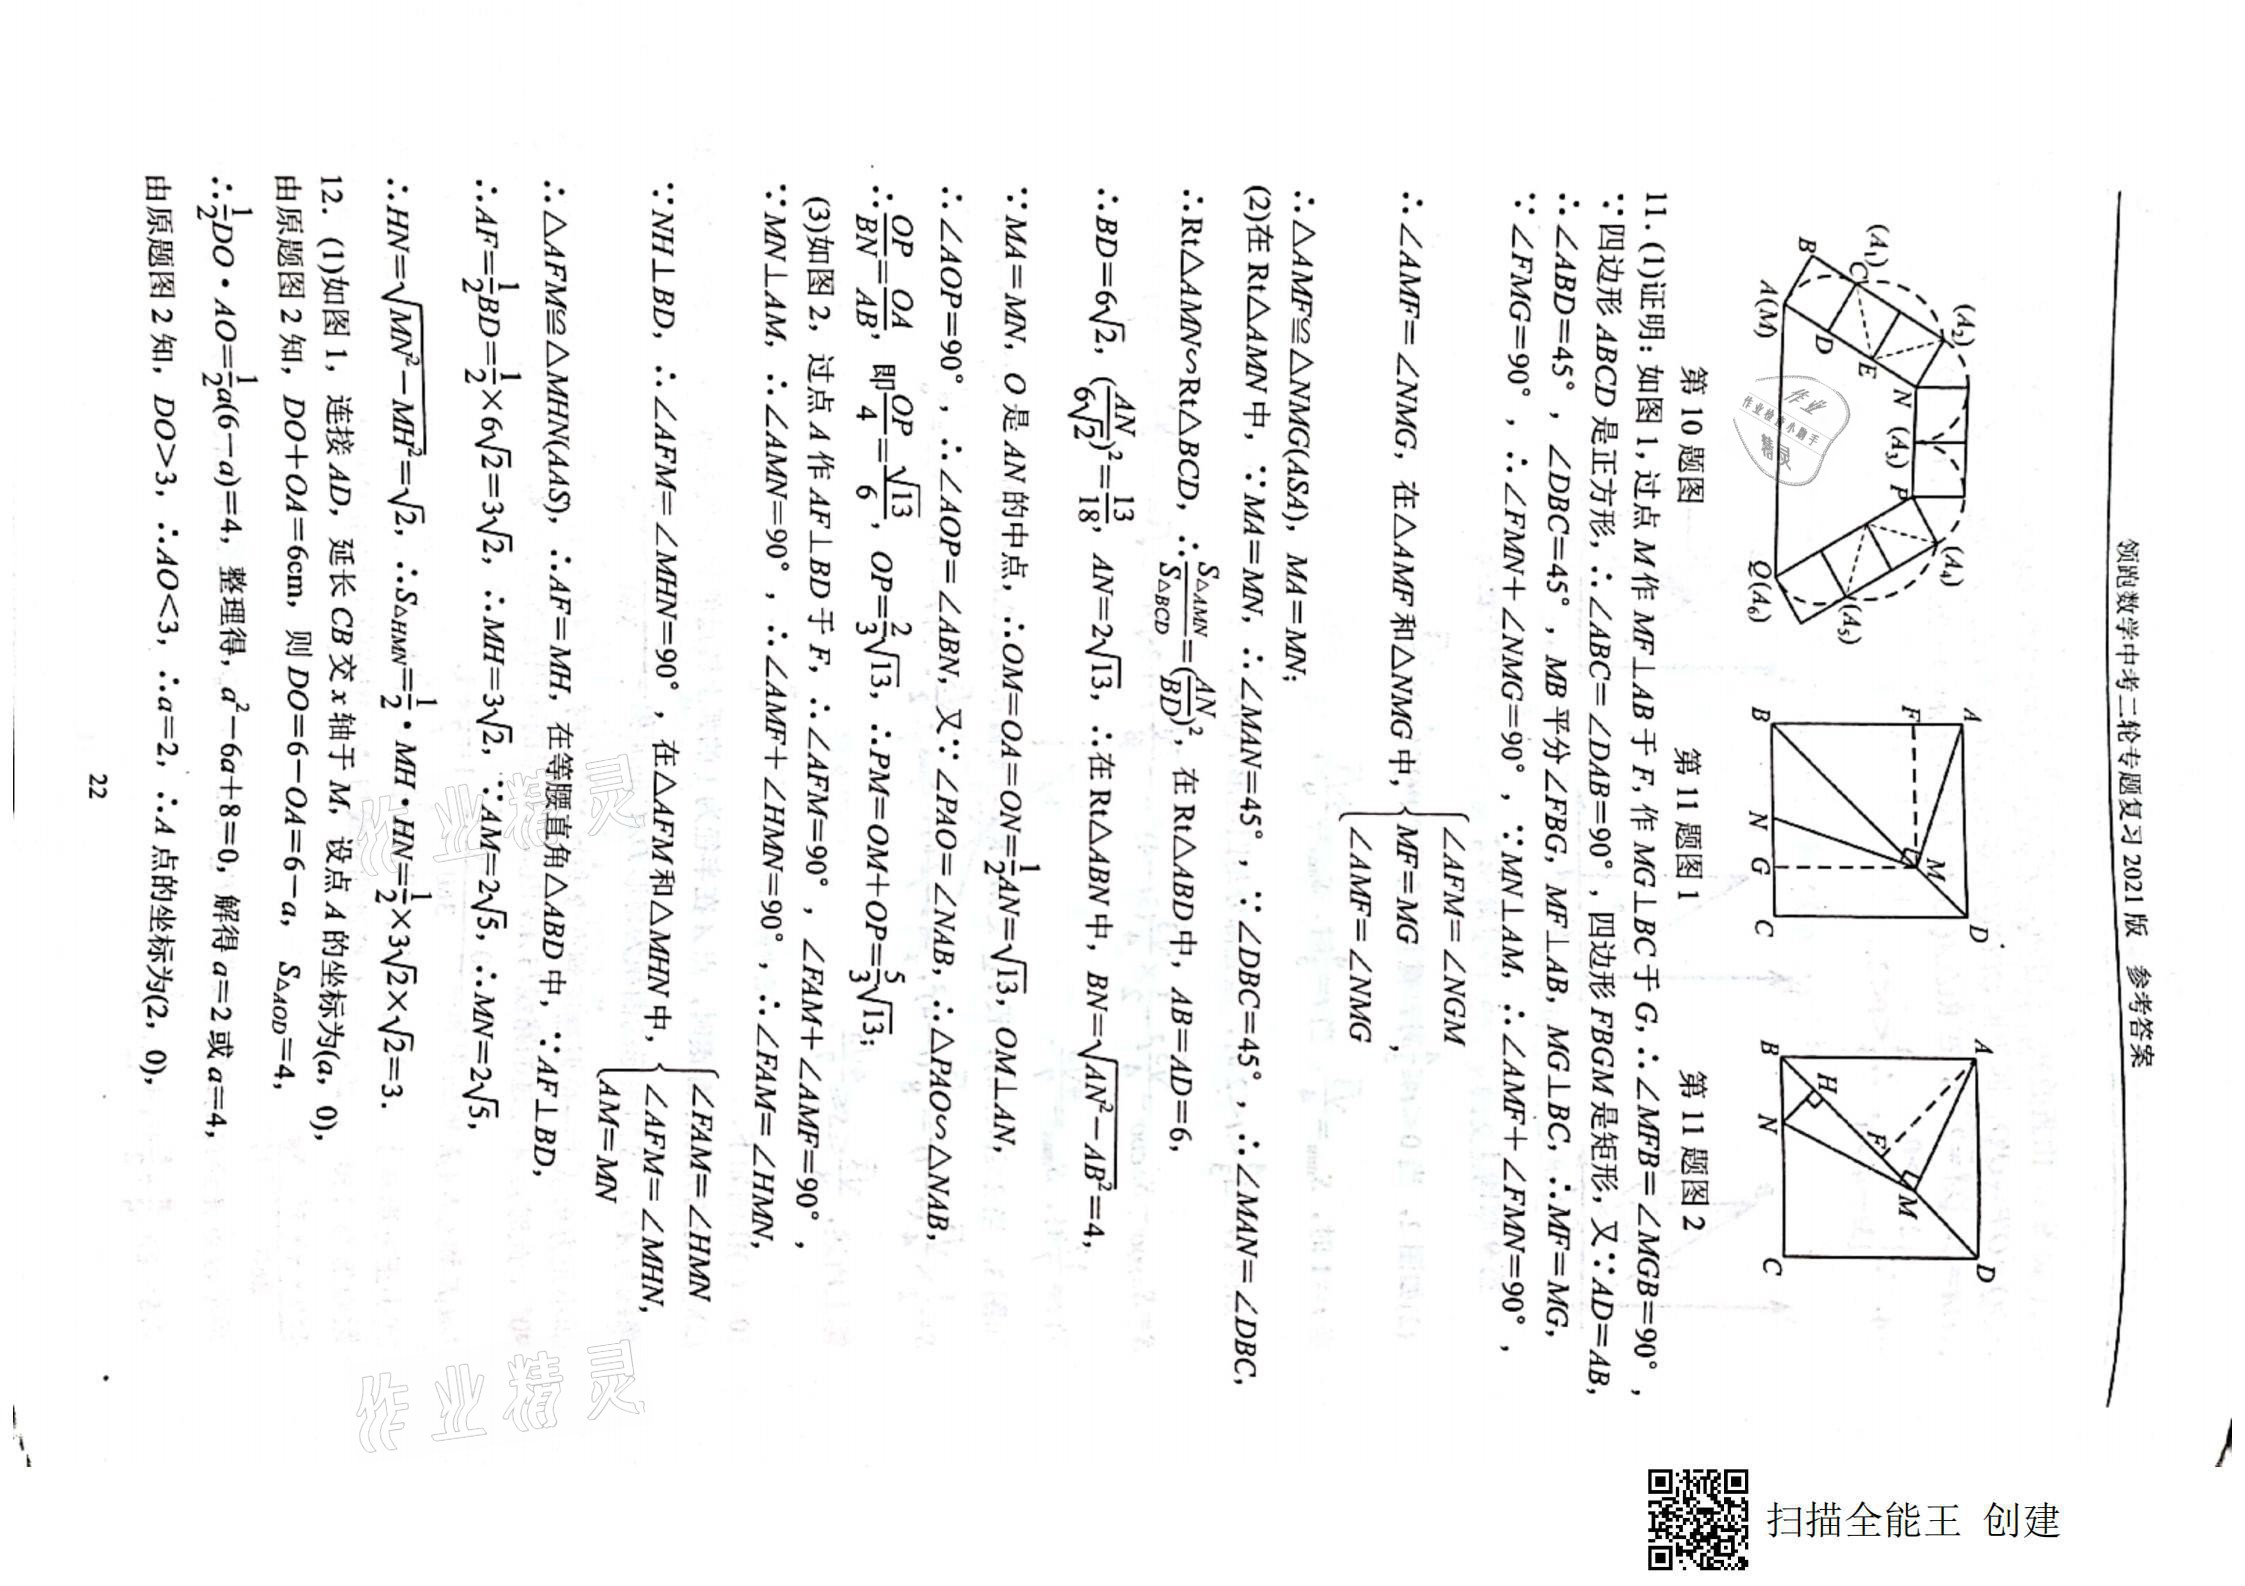 领跑数学中考二轮专题复习 2021 版 参考答案
(A₁) (A₂) B C A(M) D E N (A₃) P (A₄) (A₅) Q(A₆)
A D F M B N G C
A D H F M B N C
第 10 题图 第 11 题图 1 第 11 题图 2
11. (1)证明：如图 1，过点 M 作 MF⊥AB 于 F，作 MG⊥BC 于 G，∴∠MFB=∠MGB=90°，
∵四边形 ABCD 是正方形，∴∠ABC=∠DAB=90°，四边形 FBGM 是矩形，又∵AD=AB，
∴∠ABD=45°，∠DBC=45°，MB 平分∠FBG，MF⊥AB，MG⊥BC，∴MF=MG，
∵∠FMG=90°，∴∠FMN+∠NMG=90°，∵MN⊥AM，∴∠AMF+∠FMN=90°，
∴∠AMF=∠NMG，在△AMF 和△NMG 中，{∠AFM=∠NGM MF=MG ∠AMF=∠NMG，
∴△AMF≌△NMG(ASA)，MA=MN；
(2)在 Rt△AMN 中，∵MA=MN，∴∠MAN=45°，∵∠DBC=45°，∴∠MAN=∠DBC，
∴Rt△AMN∽Rt△BCD，∴S△AMN/S△BCD=(AN/BD)²，在 Rt△ABD 中，AB=AD=6，
∴BD=6√2，(AN/6√2)²=13/18，AN=2√13，∴在 Rt△ABN 中，BN=√(AN²-AB²)=4，
∵MA=MN，O 是 AN 的中点，∴OM=OA=ON=1/2AN=√13，OM⊥AN，
∴∠AOP=90°，∴∠AOP=∠ABN，又∵∠PAO=∠NAB，∴△PAO∽△NAB，
∴OP/BN=OA/AB，即OP/4=√13/6，OP=2/3√13，∴PM=OM+OP=5/3√13；
(3)如图 2，过点 A 作 AF⊥BD 于 F，∴∠AFM=90°，∠FAM+∠AMF=90°，
∵MN⊥AM，∴∠AMN=90°，∴∠AMF+∠HMN=90°，∴∠FAM=∠HMN，
∵NH⊥BD，∴∠AFM=∠MHN=90°，在△AFM 和△MHN 中，{∠FAM=∠HMN ∠AFM=∠MHN， AM=MN
∴△AFM≌△MHN(AAS)，∴AF=MH，在等腰直角△ABD 中，∵AF⊥BD，
∴AF=1/2BD=1/2×6√2=3√2，∴MH=3√2，∵AM=2√5，∴MN=2√5，
∴HN=√(MN²-MH²)=√2，∴S△HMN=1/2•MH•HN=1/2×3√2×√2=3.
12. (1)如图 1，连接 AD，延长 CB 交 x 轴于 M，设点 A 的坐标为(a，0)，
由原题图 2 知，DO+OA=6cm，则 DO=6-OA=6-a，S△AOD=4，
∴1/2DO•AO=1/2a(6-a)=4，整理得，a²-6a+8=0，解得 a=2 或 a=4，
由原题图 2 知，DO>3，∴AO<3，∴a=2，∴A 点的坐标为(2，0)，
22
作业
作业检查小助手
精灵
作业精灵
作业精灵
扫描全能王 创建